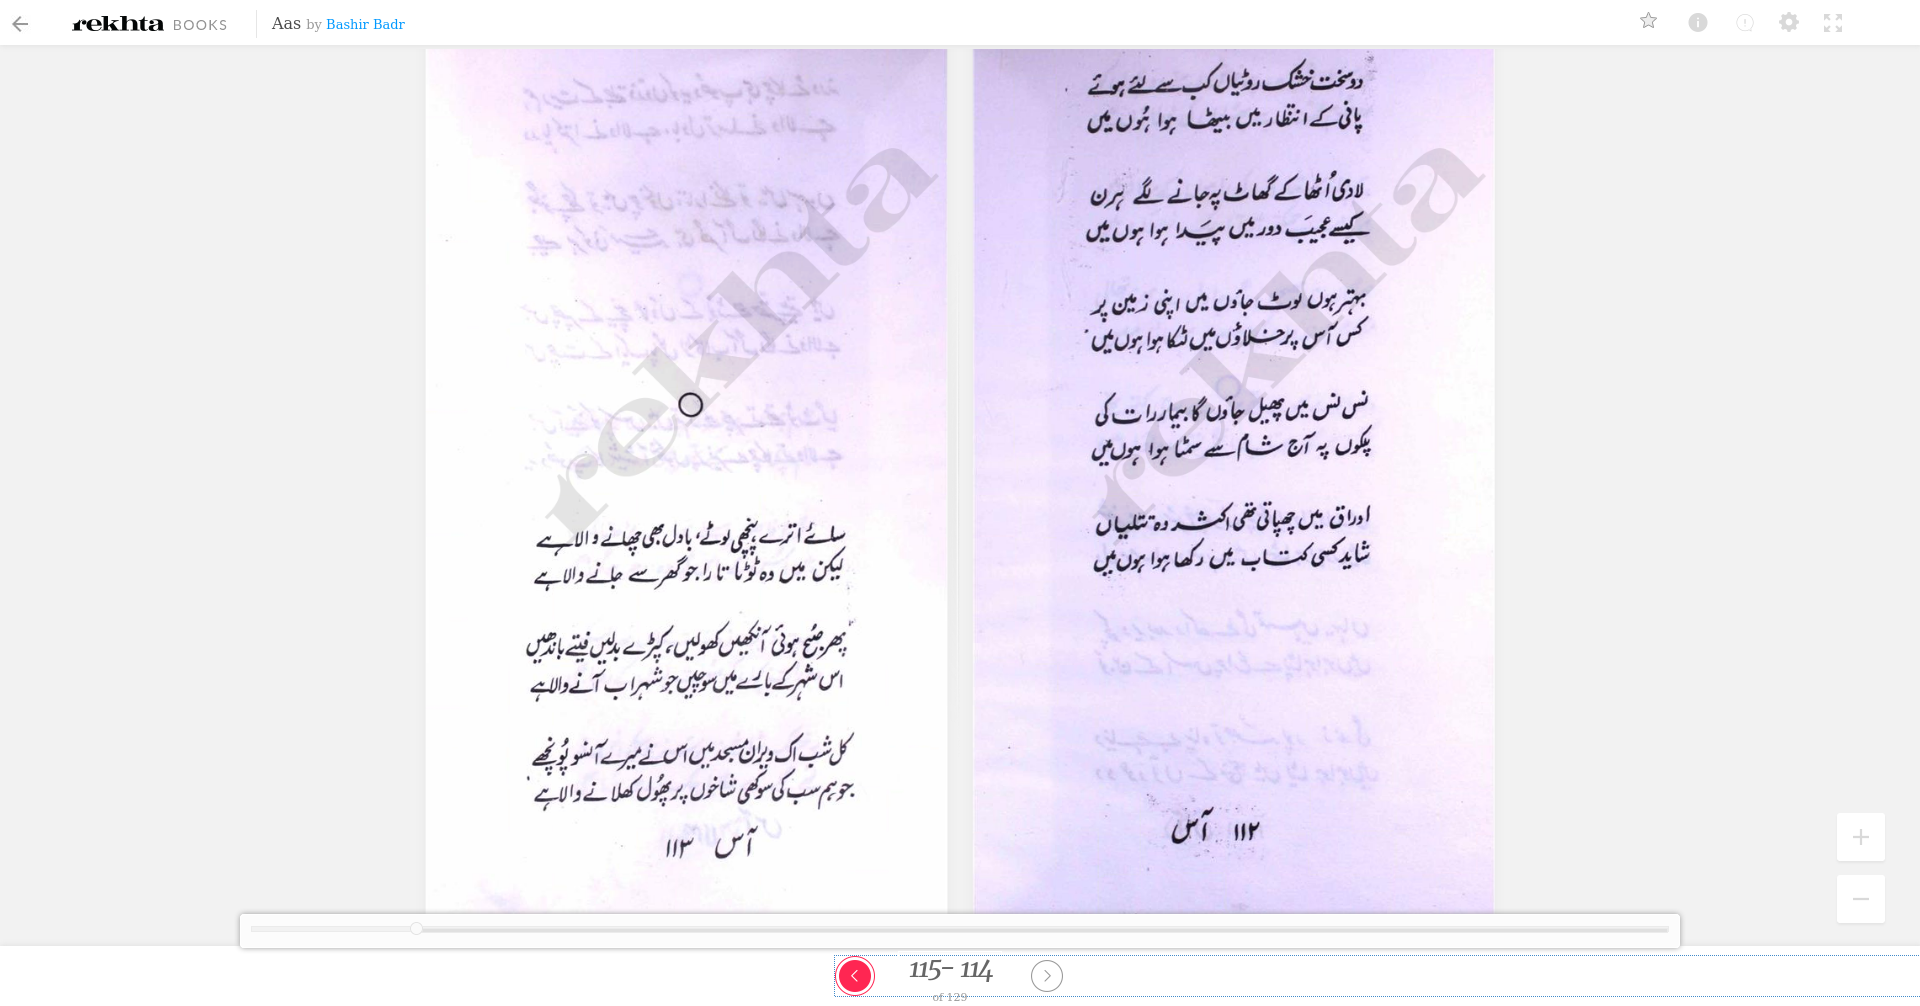 rekhta BOOKS Aas by Bashir Badr
دو سخت خشک روٹیاں کب سے لئے ہوئے
پانی کے انتظار میں بیٹھا ہوا ہُوں میں
لادی اُٹھا کے گھاٹ پہ جانے لگے ہرن
کیسے عجیب دور میں پیدا ہوا ہوں میں
بہتر ہوں لوٹ جاؤں میں اپنی زمین پر
کس آس پر خلاؤں میں ٹکا ہوا ہوں میں
نس نس میں پھیل جاؤں گا بیمار رات کی
پلکوں پہ آج شام سے سمٹا ہوا ہوں میں
اوراق میں چھپاتی تھی اکثر وہ تتلیاں
شاید کسی کتاب میں رکھا ہوا ہوں میں
۱۱۲ آس
سائے اترے، پنچھی لوٹے، بادل بھی چھانے والا ہے
لیکن میں وہ ٹوٹا تارا جو گھر سے جانے والا ہے
پھر صبح ہوئی آنکھیں کھولیں، کپڑے بدلیں فیتے باندھیں
اس شہر کے بارے میں سوچیں جو شہر اب آنے والا ہے
کل شب اک ویران مسجد میں اس نے میرے آنسو پُونچھے
جو ہم سب کی سوکھی شاخوں پر پھُول کھلانے والا ہے
آس ۱۱۳
rekhta
rekhta
115- 114
of 129